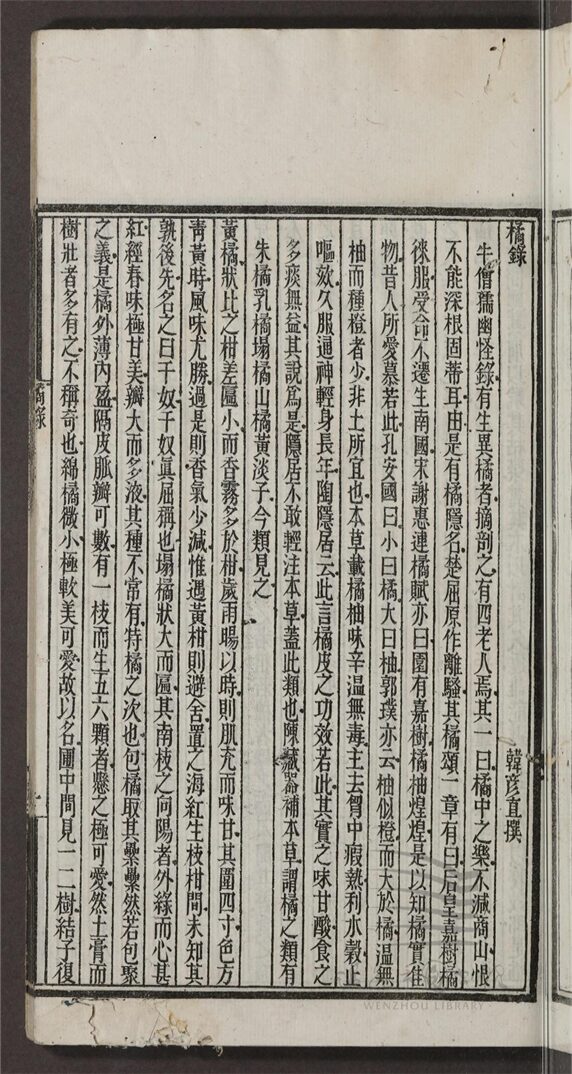 橘錄
韓彦直撰
牛僧孺幽怪錄有生異橘者摘剖之有四老人焉其一曰橘中之樂不減商山恨
不能深根固蔕耳由是有橘隱名楚屈原作離騷其橘頌一章有曰后皇嘉樹橘
徠服受命不遷生南國宋謝惠連橘賦亦曰園有嘉樹橘柚煌煌是以知橘實佳
物昔人所愛慕若此孔安國曰小曰橘大曰柚郭璞亦云柚似橙而大於橘溫無
柚而種橙者少非土所宜也本草載橘柚味辛溫無毒主去胷中瘕熱利水穀止
嘔欬久服通神輕身長年陶隱居云此言橘皮之功效若此其實之味甘酸食之
多痰無益其說爲是隱居不敢輕注本草蓋此類也陳藏器補本草謂橘之類有
朱橘乳橘塌橘山橘黃淡子今類見之
黃橘狀比之柑差匾小而香霧多於柑歲雨暘以時則肌充而味甘其圍四寸色方
靑黃時風味尤勝過是則香氣少減惟遇黃柑則避舍置之海紅生枝柑間未知其
孰後先名之曰千奴千奴眞屈稱也塌橘狀大而匾其南枝之向陽者外綠而心甚
紅經春味極甘美瓣大而多液其種不常有特橘之次也包橘取其纍纍然若包聚
之義是橘外薄內盈隔皮脈瓣可數有一枝而生五六顆者懸之極可愛然土膏而
樹壯者多有之不稱奇也綿橘微小極軟美可愛故以名圃中間見一二樹結子復
橘錄
一
WENZHOU LIBRARY